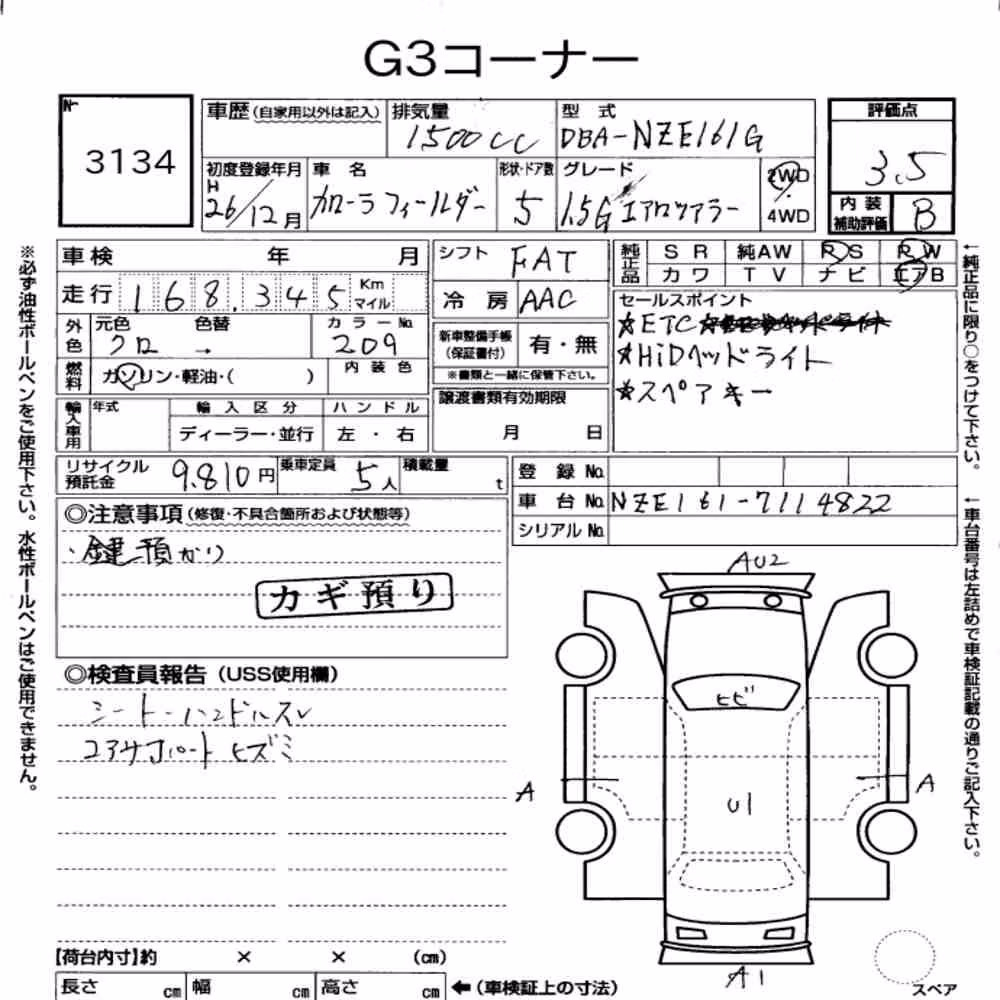 G3コーナー
No 3134
車歴(自家用以外は記入) 排気量 1500cc 型式 DBA-NZE161G
評価点 3.5
初度登録年月 H 26/12月 車名 カローラフィールダー 形状・ドア数 5 グレード 1.5G エアロツアラー 2WD 4WD
内装補助評価 B
車検 年 月 シフト FAT 純正品 SR 純AW RS RW
カワ TV ナビ エアB
走行 168,345 Km マイル 冷房 AAC
セールスポイント
☆ETC
☆HiDヘッドライト
☆スペアキー
外色 元色 クロ 色替 → カラーNo. 209
新車整備手帳(保証書付) 有・無
※書類と一緒に保管下さい。
燃料 ガソリン・軽油・( ) 内装色
譲渡書類有効期限
月 日
輸入車用 年式 輸入区分 ハンドル
ディーラー・並行 左・右
リサイクル預託金 9.810円 乗車定員 5人 積載量 t
登録No.
車台No. NZE161-7114822
シリアルNo.
◎注意事項(修復・不具合箇所および状態等)
・鍵預かり
カギ預り
◎検査員報告(USS使用欄)
シート・ハンドルスレ
コアサポート ヒズミ
AU2
ヒビ
A
U1
A
A1
スペア
【荷台内寸】約 × × (cm)
長さ cm 幅 cm 高さ cm ←(車検証上の寸法)
※必ず油性ボールペンをご使用下さい。水性ボールペンはご使用できません。
←純正品に限り○をつけて下さい。
←車台番号は左詰めで車検証記載の通りご記入下さい。